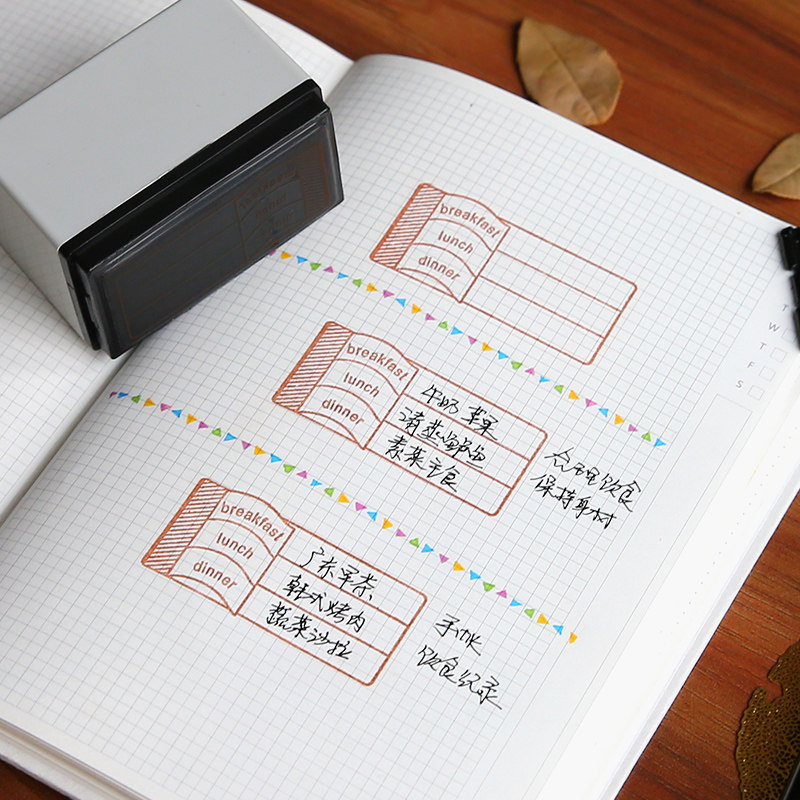 breakfast
lunch
dinner
breakfast 牛奶 苹果
lunch 清蒸鲈鱼
dinner 素菜主食
合理饮食
保持身材
breakfast 广东早茶
lunch 韩式烤肉
dinner 蔬菜沙拉
手帐
饮食纪录
T
W
T
F
S